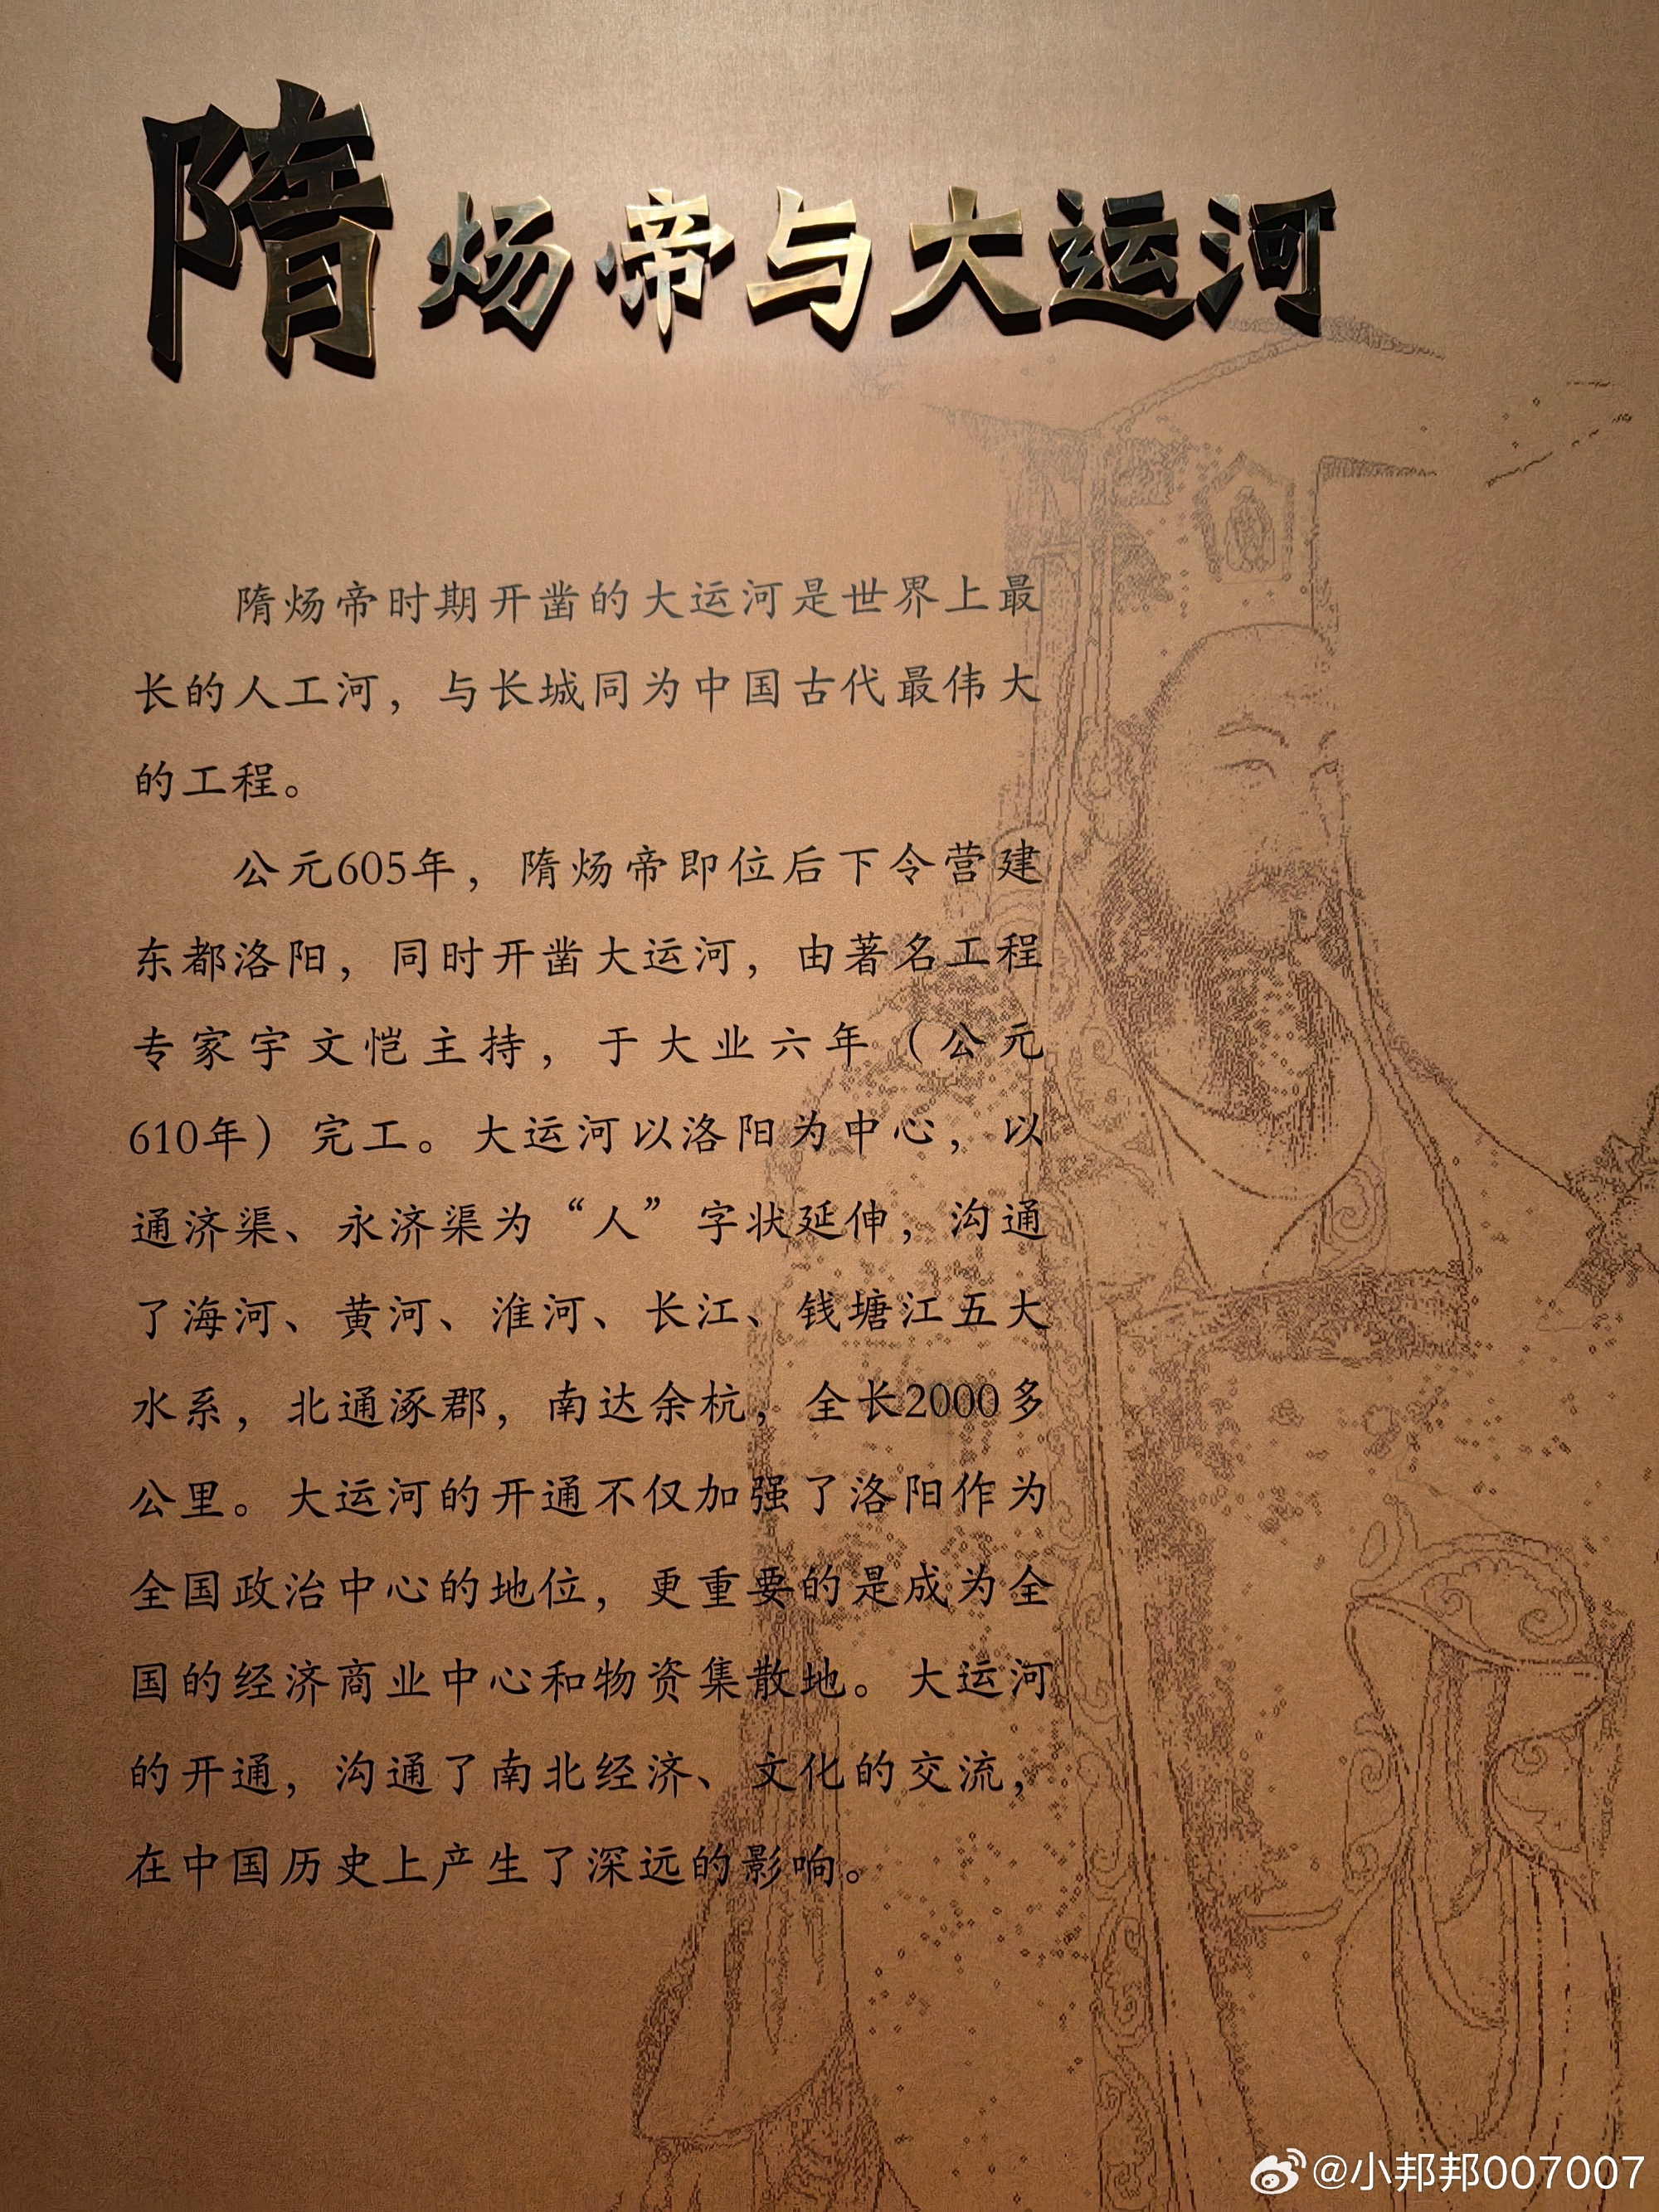 隋炀帝与大运河
隋炀帝时期开凿的大运河是世界上最
长的人工河，与长城同为中国古代最伟大
的工程。
公元605年，隋炀帝即位后下令营建
东都洛阳，同时开凿大运河，由著名工程
专家宇文恺主持，于大业六年（公元
610年）完工。大运河以洛阳为中心，以
通济渠、永济渠为“人”字状延伸，沟通
了海河、黄河、淮河、长江、钱塘江五大
水系，北通涿郡，南达余杭，全长2000多
公里。大运河的开通不仅加强了洛阳作为
全国政治中心的地位，更重要的是成为全
国的经济商业中心和物资集散地。大运河
的开通，沟通了南北经济、文化的交流，
在中国历史上产生了深远的影响。
@小邦邦007007